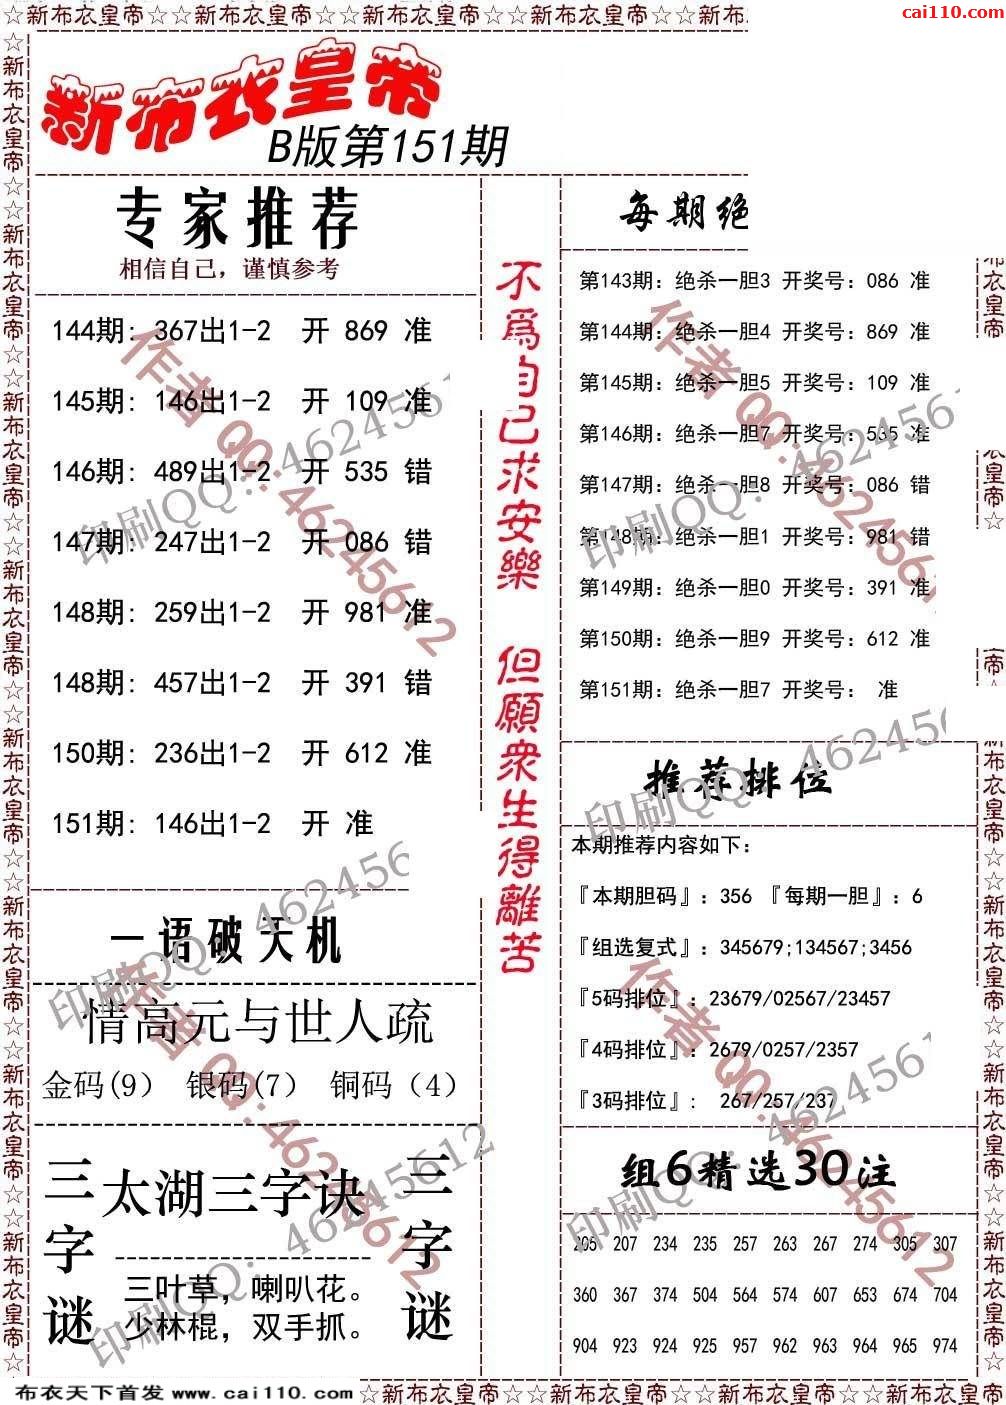 ☆新布衣皇帝☆☆新布衣皇帝☆☆新布衣皇帝☆☆新布衣皇帝☆☆新布
cai110.com
新布衣皇帝
B版第151期
专家推荐
相信自己，谨慎参考
144期: 367出1-2 开 869 准
145期: 146出1-2 开 109 准
146期: 489出1-2 开 535 错
147期: 247出1-2 开 086 错
148期: 259出1-2 开 981 准
148期: 457出1-2 开 391 错
150期: 236出1-2 开 612 准
151期: 146出1-2 开 准
一语破天机
情高元与世人疏
金码(9) 银码(7) 铜码（4）
三字谜
太湖三字诀
三叶草，喇叭花。
少林棍，双手抓。
三字谜
不為自己求安樂 但願衆生得離苦
每期绝
第143期: 绝杀一胆3 开奖号: 086 准
第144期: 绝杀一胆4 开奖号: 869 准
第145期: 绝杀一胆5 开奖号: 109 准
第146期: 绝杀一胆7 开奖号: 535 准
第147期: 绝杀一胆8 开奖号: 086 错
第148期: 绝杀一胆1 开奖号: 981 错
第149期: 绝杀一胆0 开奖号: 391 准
第150期: 绝杀一胆9 开奖号: 612 准
第151期: 绝杀一胆7 开奖号: 准
推荐排位
本期推荐内容如下:
『本期胆码』: 356 『每期一胆』: 6
『组选复式』: 345679;134567;3456
『5码排位』: 23679/02567/23457
『4码排位』: 2679/0257/2357
『3码排位』: 267/257/237
组6精选30注
205 207 234 235 257 263 267 274 305 307
360 367 374 504 564 574 607 653 674 704
904 923 924 925 957 962 963 964 965 974
作者QQ:46245612
印刷QQ: 46245612
布衣天下首发 www.cai110.com
☆新布衣皇帝☆☆新布衣皇帝☆☆新布衣皇帝☆☆新布衣皇帝☆